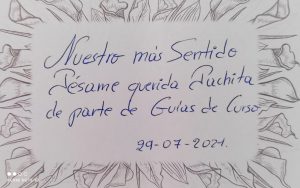 Nuestro más Sentido
Pésame querida Pachita
de parte de Guías de Curso,
29-07-2021.